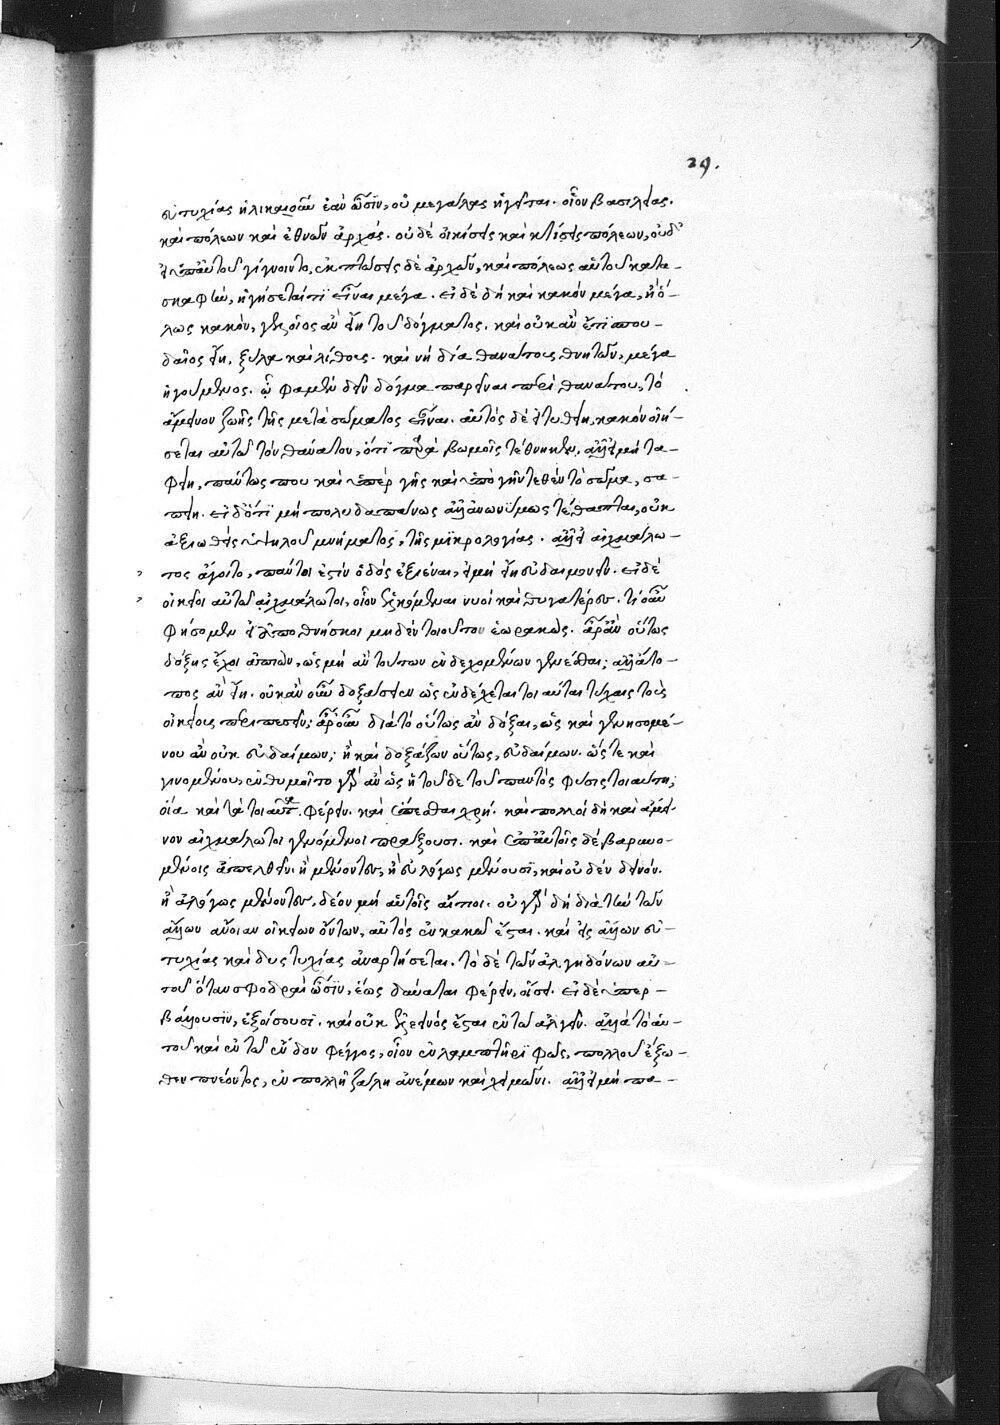 29.
εὐτυχίας ἡλικαιοῦν ἐὰν ὦσϊν, οὐ μεγάλας ἡγεῖται. οἷον βασιλείας.
καὶ πόλεων καὶ ἐθνῶν ἀρχάς. οὐδὲ οἰκίσεις καὶ κτίσεις πόλεων, οὐδ'
εἰ ὑπ' αὐτοῦ γίγνοιντο, ἐκπτώσεις δὲ ἀρχῶν, καὶ πόλεως αὐτοῦ κατα-
σκαφὴν, ἡγήσεταί τϊ εἶναι μέγα. εἰ δὲ δὴ καὶ κακὸν μέγα, ἢ ὅ-
λως κακὸν, γελοῖος ἂν εἴη τοῦ δόγματος. καὶ οὐκ ἂν ἔτϊ σπου-
δαῖος εἴη, ξύλα καὶ λίθους. καὶ νὴ δία θανάτους θνητῶν, μέγα
ἡγούμενος. ᾧ φαμὲν δεῖν δόγμα παρεῖναι περὶ θανάτου, τὸ
ἄμεινον ζωῆς τῆς μετὰ σώματος εἶναι. αὐτὸς δὲ εἰ τυθείη, κακὸν οἰή-
σεται αὐτῶ τὸν θάνατον, ὅτϊ παρὰ βωμοῖς τέθνηκεν, ἀλλ' εἰ μὴ τα-
φείη, πάντως που καὶ ὑπὲρ γῆς καὶ ὑπὸ γῆν τεθὲν τὸ σῶμα, σα-
πείη. εἰ δ' ὅτϊ μὴ πολυδαπάνως ἀλλ' ἀνωνύμως τέθαπται, οὐκ
ἀξιωθεὶς ὑψηλοῦ μνήματος, τῆς μϊκρολογίας. ἀλλ' εἰ αἰχμάλω-
τος ἄγοιτο, πάντοι ἐστὶν ὁδὸς ἐξιέναι, εἰ μὴ εἴη εὐδαιμονεῖν. εἰ δὲ
οἰκεῖοι αὐτῶ αἰχμάλωτοι, οἷον ἑλκόμεναι νυοὶ καὶ θυγατέρες. τί οὖν
φήσομεν εἰ ἀποθνήσκοι μηδὲν τοιοῦτον ἑωρακώς. ἆρ' ἂν οὕτως
δόξης ἔχοι ἀπιὼν, ὡς μὴ ἂν τούτων ἐνδεχομένων γενέσθαι; ἀλλ' ἄτο-
πος ἂν εἴη. οὐκ ἂν οὖν δοξάσειεν ὡς ἐνδέχεται τοιαύταις τύχαις τοὺς
οἰκείους περιπεσεῖν; ἆρ' οὖν διὰ τὸ οὕτως ἂν δόξαι, ὡς καὶ γενησομέ-
νου ἂν οὐκ εὐδαίμων; ἢ καὶ δοξάζων οὕτως, εὐδαίμων. ὥστε καὶ
γινομένου, ἐνθυμοῖτο γὰρ ἂν ὡς ἡ τοῦδε τοῦ παντὸς φύσις τοιαύτη;
οἵα καὶ τὰ τοιαῦτα φέρειν. καὶ ἕπεσθαι χρή. καὶ πολλοὶ δὴ καὶ ἄμει-
νον αἰχμάλωτοι γενόμενοι πράξουσι. καὶ ἐπ' αὐτοῖς δὲ βαρυνο-
μένοις ἀπελθεῖν. ἢ μένοντες, ἢ εὐλόγως μένουσϊ, καὶ οὐδὲν δεινόν.
ἢ ἀλόγως μένοντες, δέον μὴ αὐτοῖς αἴτιοι. οὐ γὰρ δὴ διὰ τὴν τῶν
ἄλλων ἄνοιαν οἰκείων ὄντων, αὐτὸς ἐν κακῶ ἔσται. καὶ εἰς ἄλλων εὐ-
τυχίας καὶ δυστυχίας ἀναρτήσεται. τὸ δὲ τῶν ἀλγηδόνων αὐ-
τοῦ ὅταν σφοδραὶ ὦσϊν, ἕως δύναται φέρειν, οἴσει. εἰ δὲ ὑπερ-
βάλλουσϊν, ἐξοίσουσϊ. καὶ οὐκ ἐλεεινὸς ἔσται ἐν τῶ ἀλγεῖν. ἀλλὰ τὸ αὐ-
τοῦ καὶ ἐν τῶ ἔνδον φέγγος, οἷον ἐν λαμπτῆρϊ φῶς, πολλοῦ ἔξω-
θεν πνέοντος, ἐν πολλῆ ζάλη ἀνέμων καὶ χειμῶνι. ἀλλ' εἰ μὴ πα-